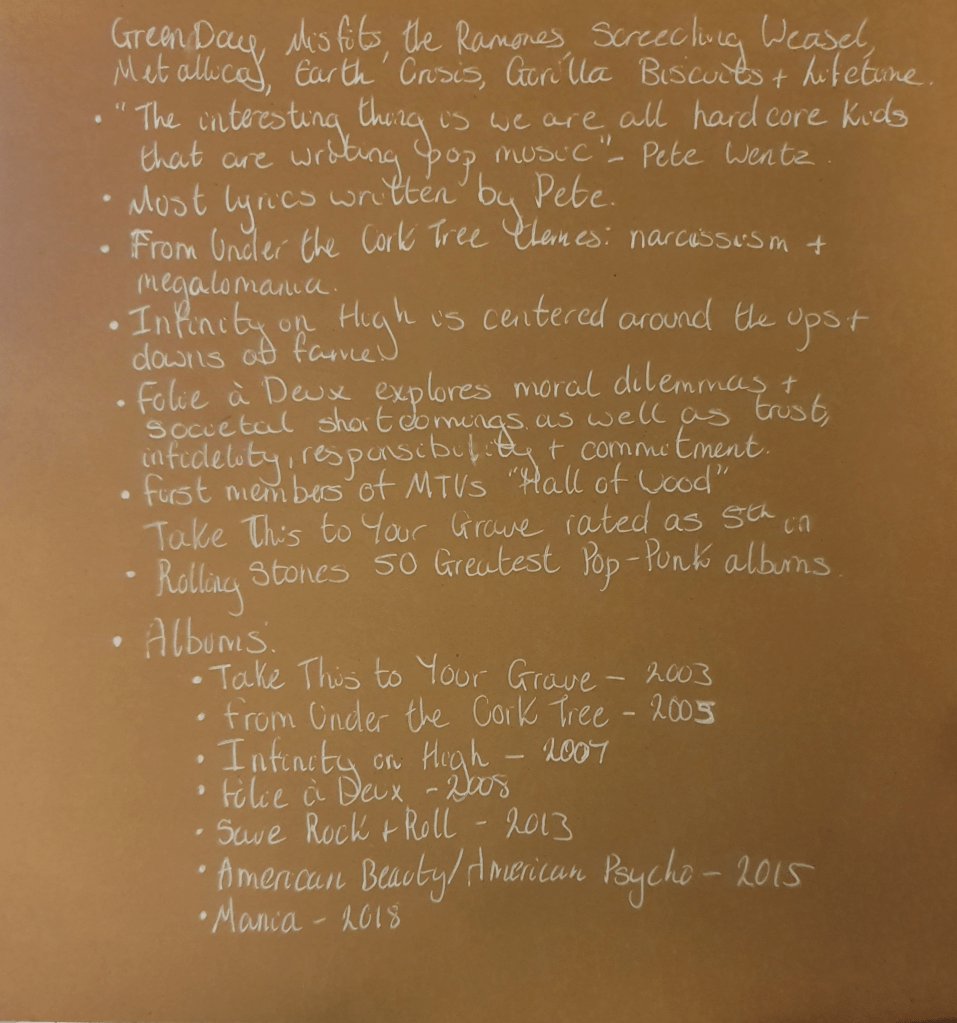 Green Day, Misfits, the Ramones, Screeching Weasel,
Metallica, Earth Crisis, Gorilla Biscuits + Lifetime.
• "The interesting thing is we are all hardcore kids
that are writing pop music" - Pete Wentz.
• Most lyrics written by Pete.
• From Under the Cork Tree themes: narcissism +
megalomania.
• Infinity on High is centered around the ups +
downs of fame.
• Folie à Deux explores moral dilemmas +
societal shortcomings as well as trust,
infidelity, responsibility + commitment.
• First members of MTVs "Hall of Wood"
Take This to Your Grave rated as 5th in
• Rolling Stones 50 Greatest Pop-Punk albums.
• Albums:
• Take This to Your Grave - 2003
• From Under the Cork Tree - 2005
• Infinity on High - 2007
• Folie à Deux - 2008
• Save Rock + Roll - 2013
• American Beauty/American Psycho - 2015
• Mania - 2018